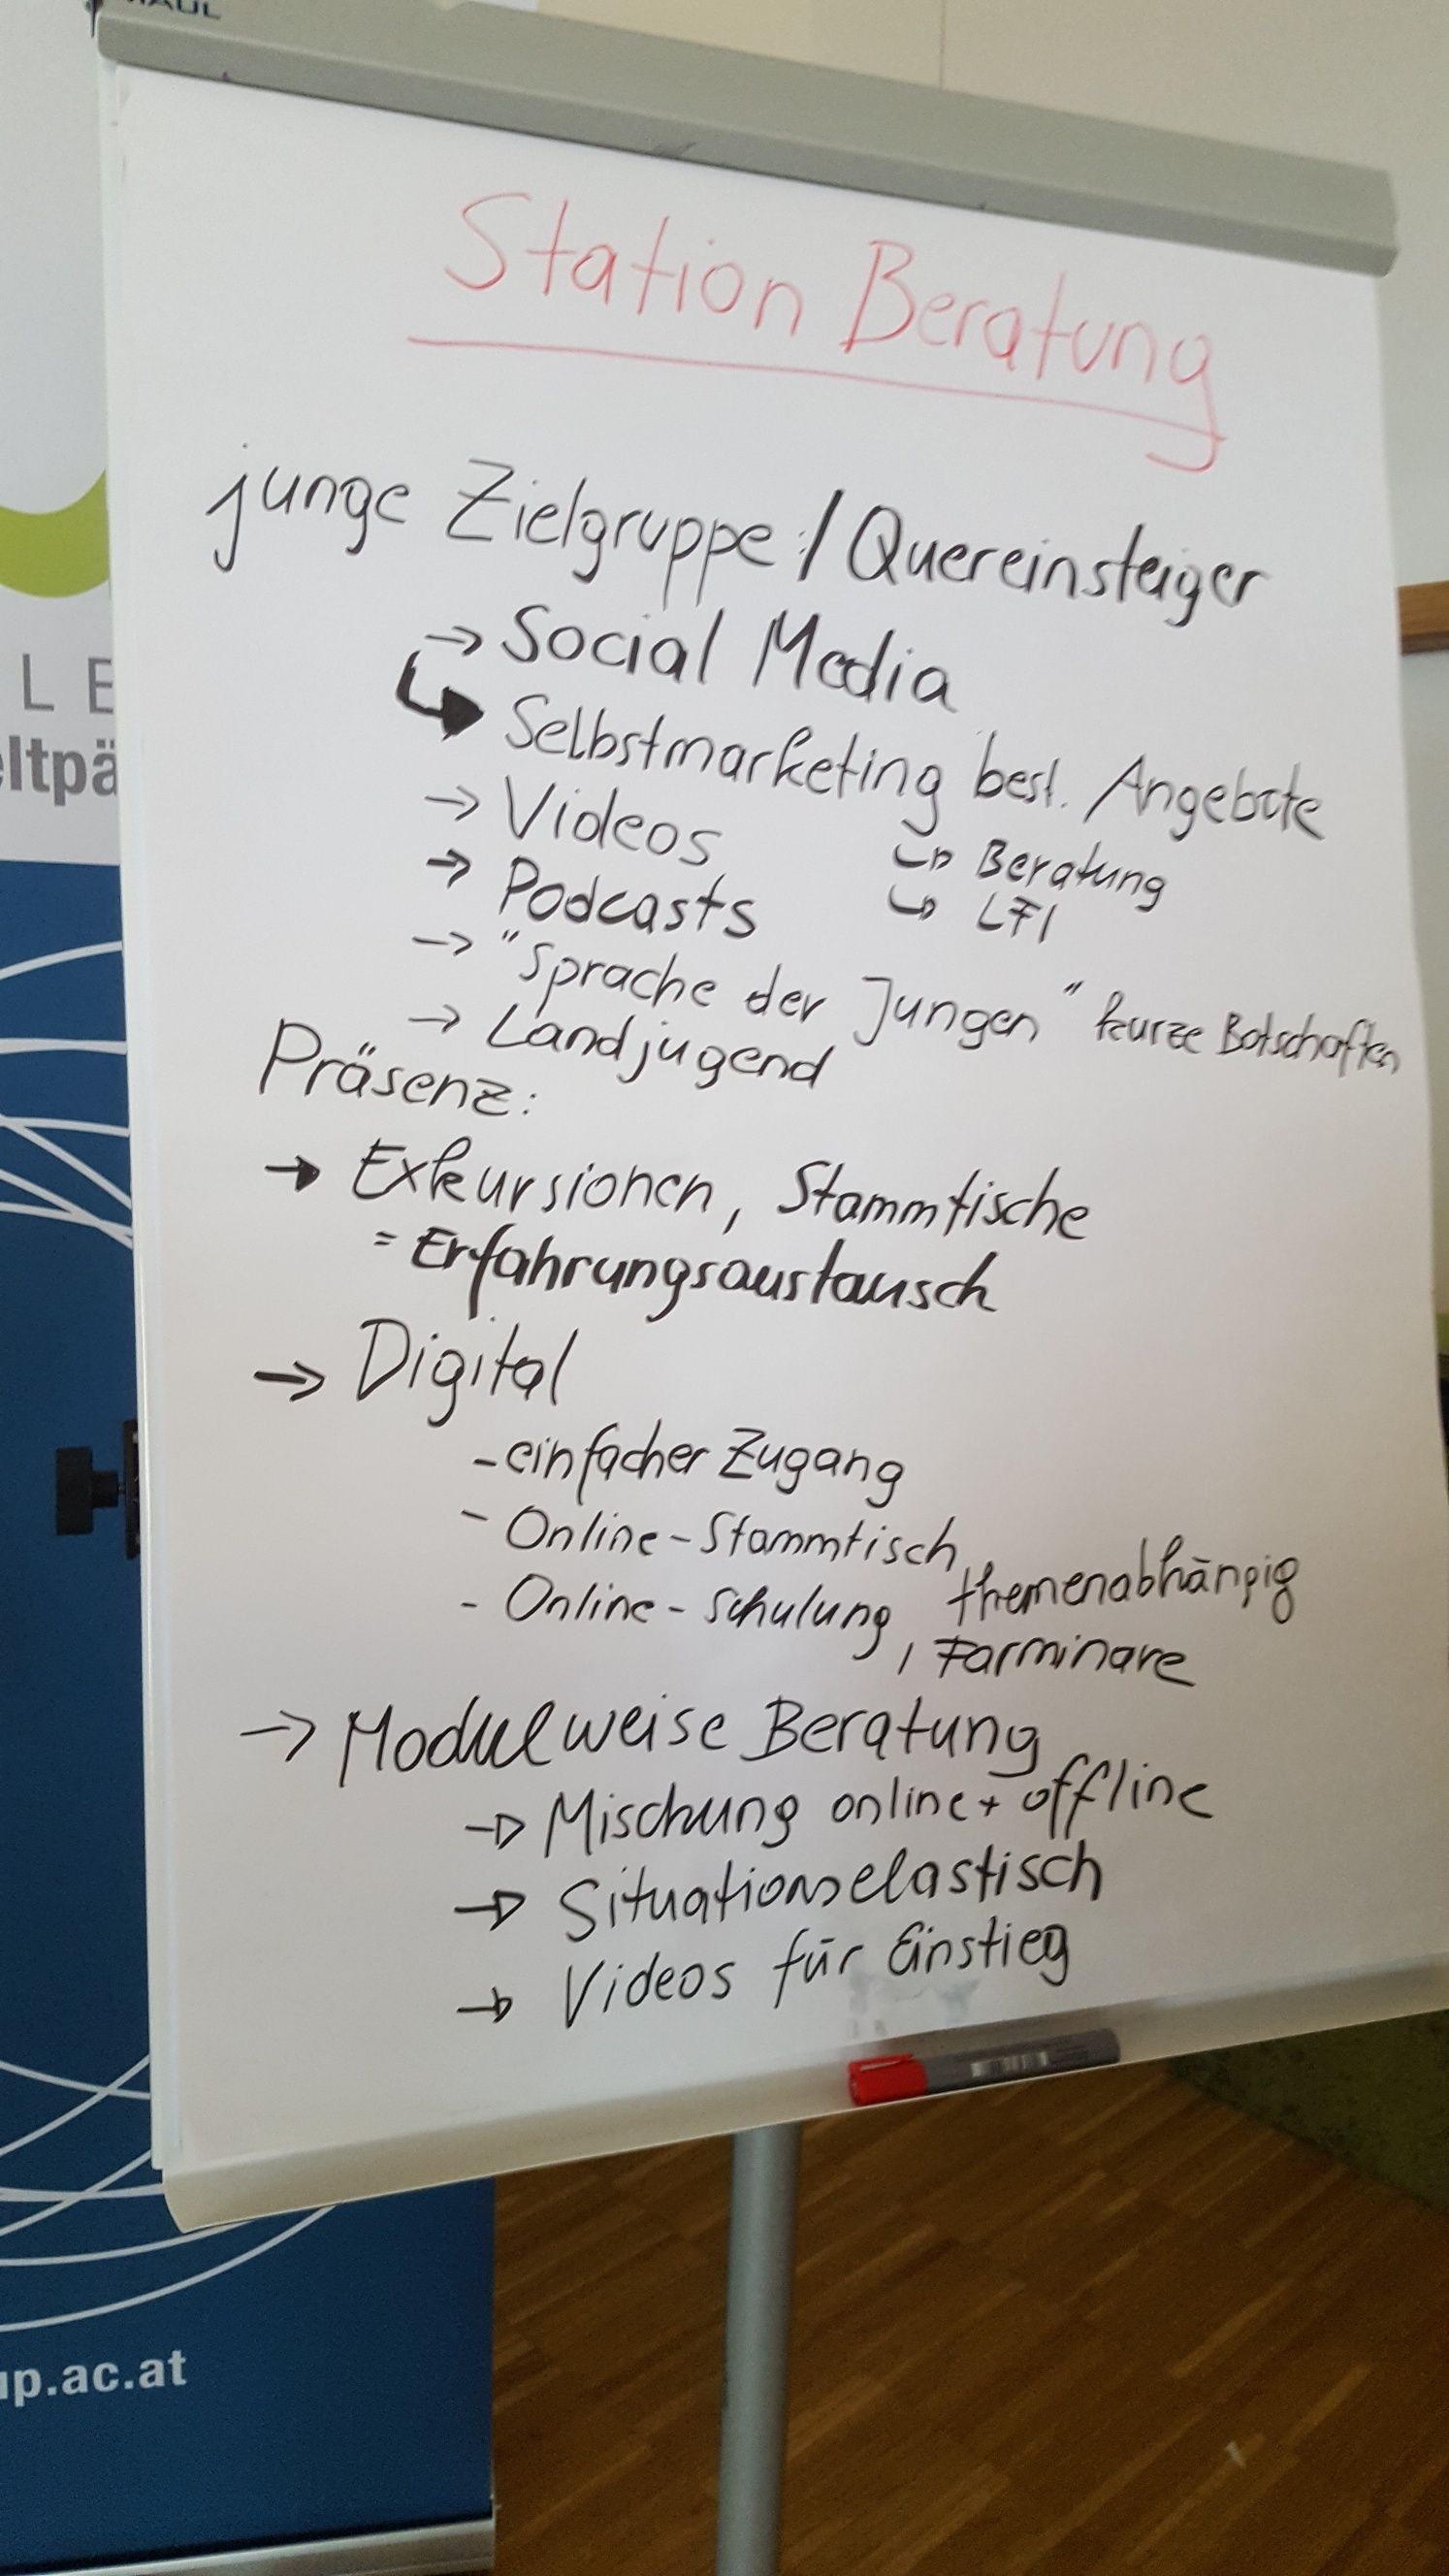 MAUL
Station Beratung
junge Zielgruppe:/Quereinsteiger
→ Social Media
↳ Selbstmarketing best. Angebote
→ Videos
↳ Beratung
→ Podcasts
↳ LFI
→ "Sprache der Jungen" kurze Botschaften
→ Landjugend
Präsenz:
→ Exkursionen, Stammtische
= Erfahrungsaustausch
→ Digital
- einfacher Zugang
- Online-Stammtisch, themenabhängig
- Online-Schulung, Farminare
→ Modulweise Beratung
→ Mischung online + offline
→ Situationselastisch
→ Videos für Einstieg
LE
eltpä
up.ac.at